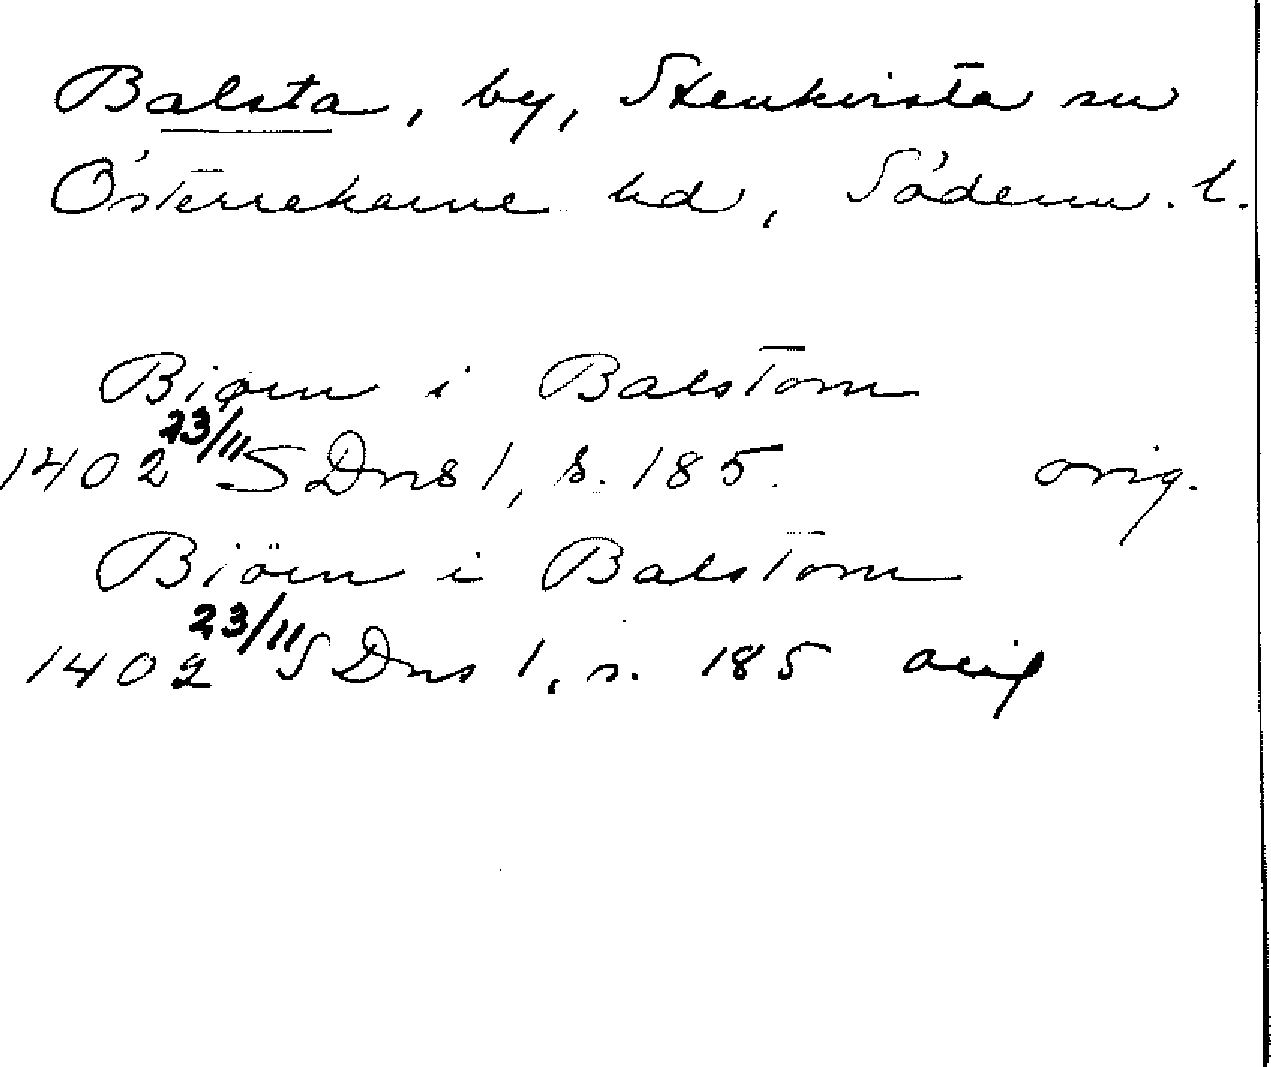 Balsta, by, Stenkvista sn
Österrekarne hd, Söderm. l.
Biørn i Balstom
1402 23/11 SDns 1, s. 185. orig.
Biörn i Balstom
1402 23/11 SDns 1, s. 185 orig